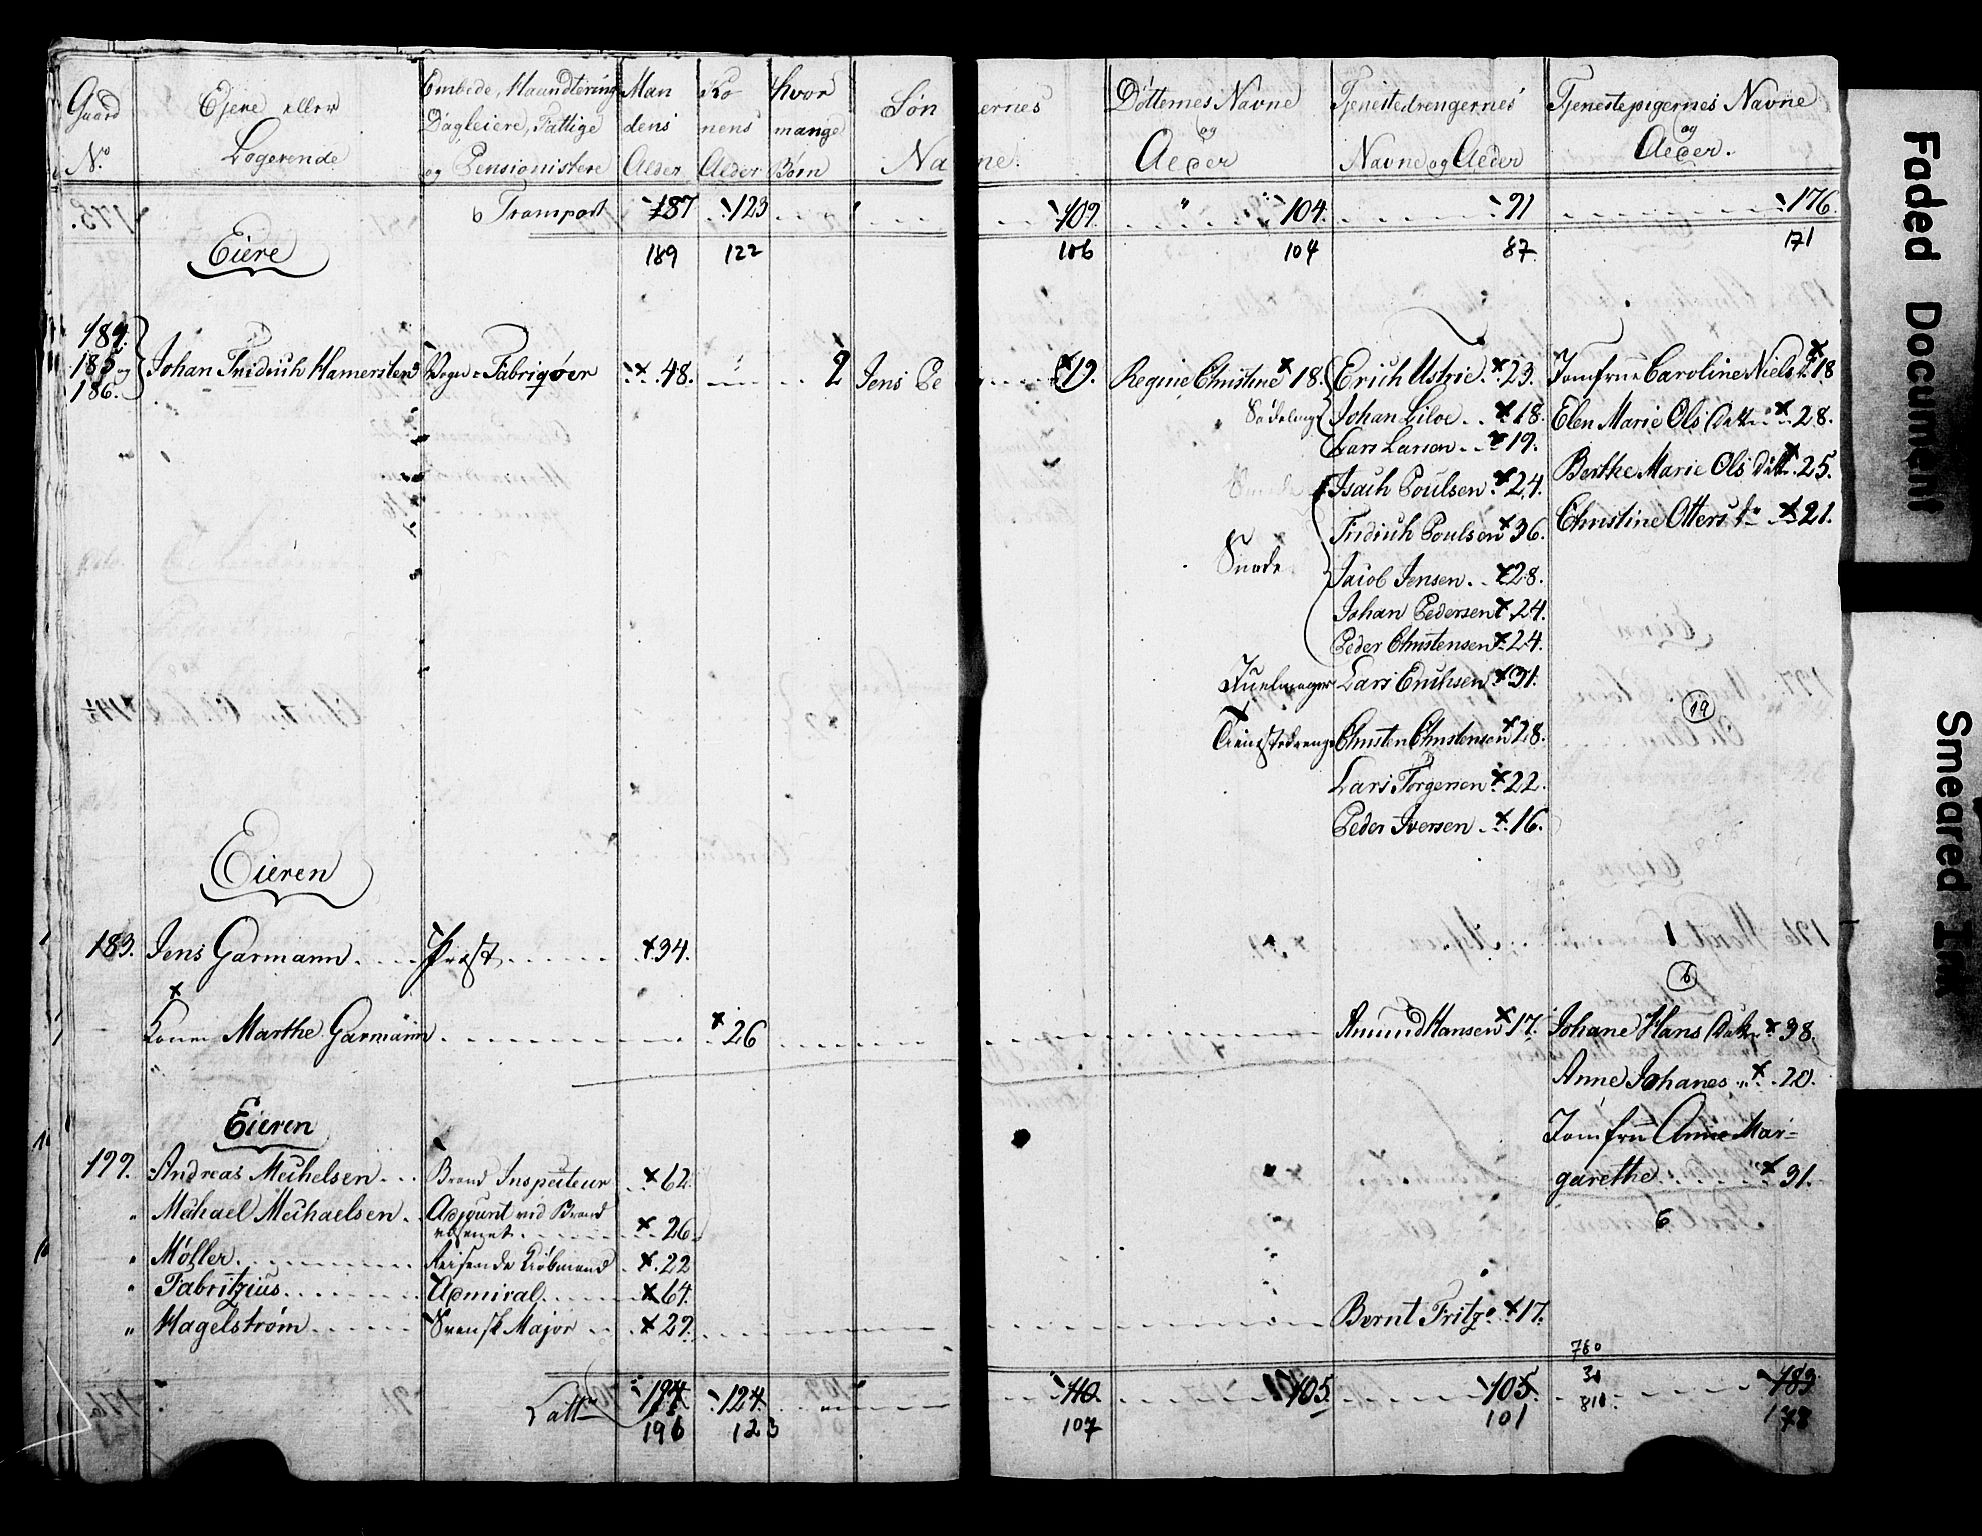 Gaard N.o
Ejere eller Logerende
Embede, Haandtering, Dagleiere, Fattige og Pensionistere
Mandens Alder
Konens Alder
hvor mange Børn
Søn ernes
Na ne.
Døtternes Navne og Alder
Tjenestedrengernes Navne og Alder
Tjenestepigernes Navne og Alder.
Transport 187 123 109. " 104. 91 176.
189 122 106 104 87 171
Eiere
184. 185 og 186. Johan Fridrich Hamersten Vogn-Fabriqør 48. 2 Jens Pe 19. Regine Christine 18. Erich Ustrie 23. Jomfrue Caroline Niels 18
Johan Liloe 18. Elen Marie Ols Datt 28.
Lars Larsen 19. Berthe Marie Ols Datt 25.
Isach Poulsen 24. Christine Otters 21.
Fridrich Poulsen 36.
Smede
Jacob Jensen 28.
Johan Pedersen 24.
Peder Christensen 24.
Hiuelmager Lars Erichsen 31.
19
Tienstedrenge Christen Christensen 28.
Lars Torgersen 22.
Peder Iversen 16.
Eieren
183. Jens Garmann Præst 34.
1
6
Konen Marthe Garmann 26 Amund Hansen 17. Johane Hans Datter 38.
Anne Johanes 20.
Jomfru Anne Mar=
garethe 31.
6
Eieren
199. Andreas Michelsen Brand Inspecteur 62.
" Michael Michaelsen Adjount ved Brand
26.
" Møller Reisende Kiøbmand 22
" Fabritzius Admiral 64.
" Hagelstrøm Svensk Major 29. Bernt Fritz 17.
780
30
810.
Latt 194 124. 110. 105. 105. 183.
196 123 107 101 178
Faded Document
Smeared Ink